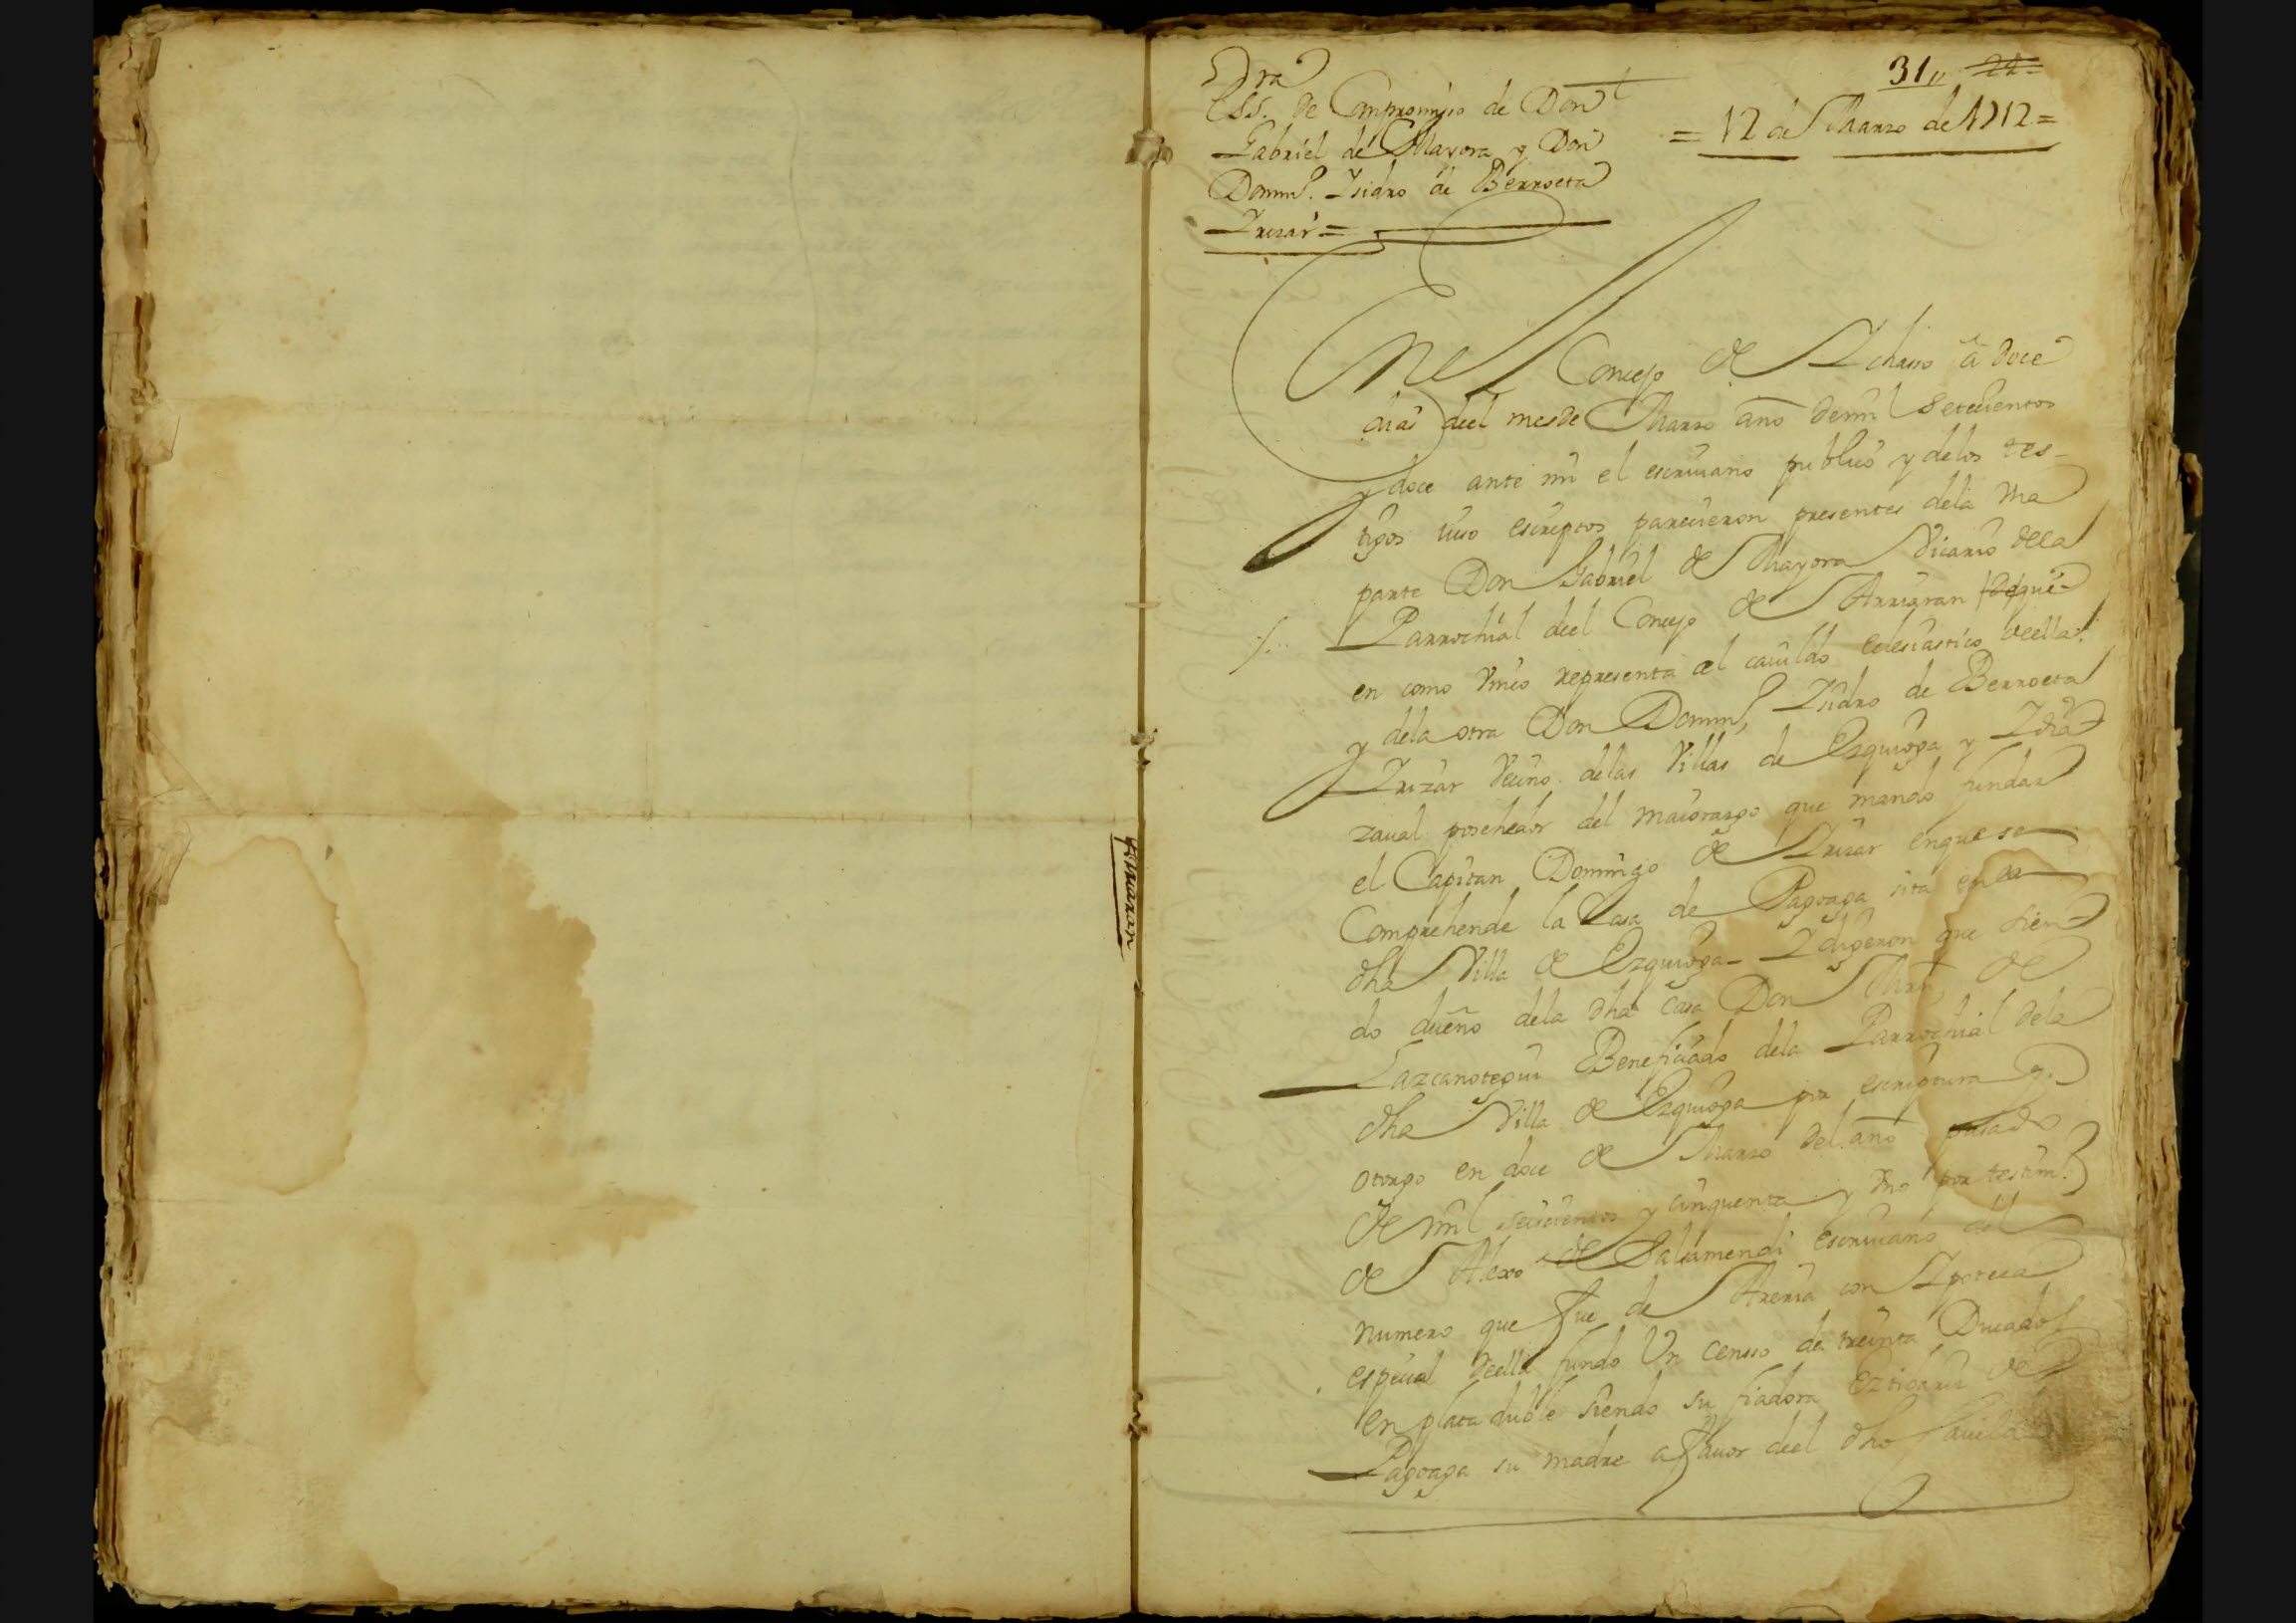 31,, 22
Ess.ra de Compromisso de Don
Gabriel de Mayora y Don
Domin.o Isidro de Berroeta
Yrizar =
= 12 de Marzo de 1712 =
En el Concejo de Ychasso â doce
dias deel mes de Marzo año de mil setecientos
y doce ante mi el escriuano publico y delos tes-
tigos iuso escriptos parecieron presentes dela Vna
parte Don Gabriel de Mayora Vicario della
Parrochial deel Concejo de Arriaran de que
en como Vnico representa el cauildo eclesiastico deella:
y dela otra Don Domin.o Isidro de Berroeta
Yrizar Vecino delas Villas de Ezquioga y Ydia
zaual posehedor del maiorazgo que mando fundar
el Capitan Domingo de Yrizar en que se
Comprehende la Casa de Pagoaga sita en la
dha Villa de Ezquioga - Y dixeron que sien
do dueño dela dha casa Don Mrn de
Lazcanotegui Beneficiado dela Parrochial dela
dha Villa de Ezquioga por escriptura q.
otorgo en doce de Marzo del año pasado
de mil seiscientos y cinquenta y Vno por testim.o
de Alexo de Galamendi escriuano del
numero que fue de Areria con Ypoteca
especial deella fundo Vn censso de treinta Ducados
en plata doble siendo su fiadora de
Pagoaga su madre a fauor deel dho Cauildo
Arriaran